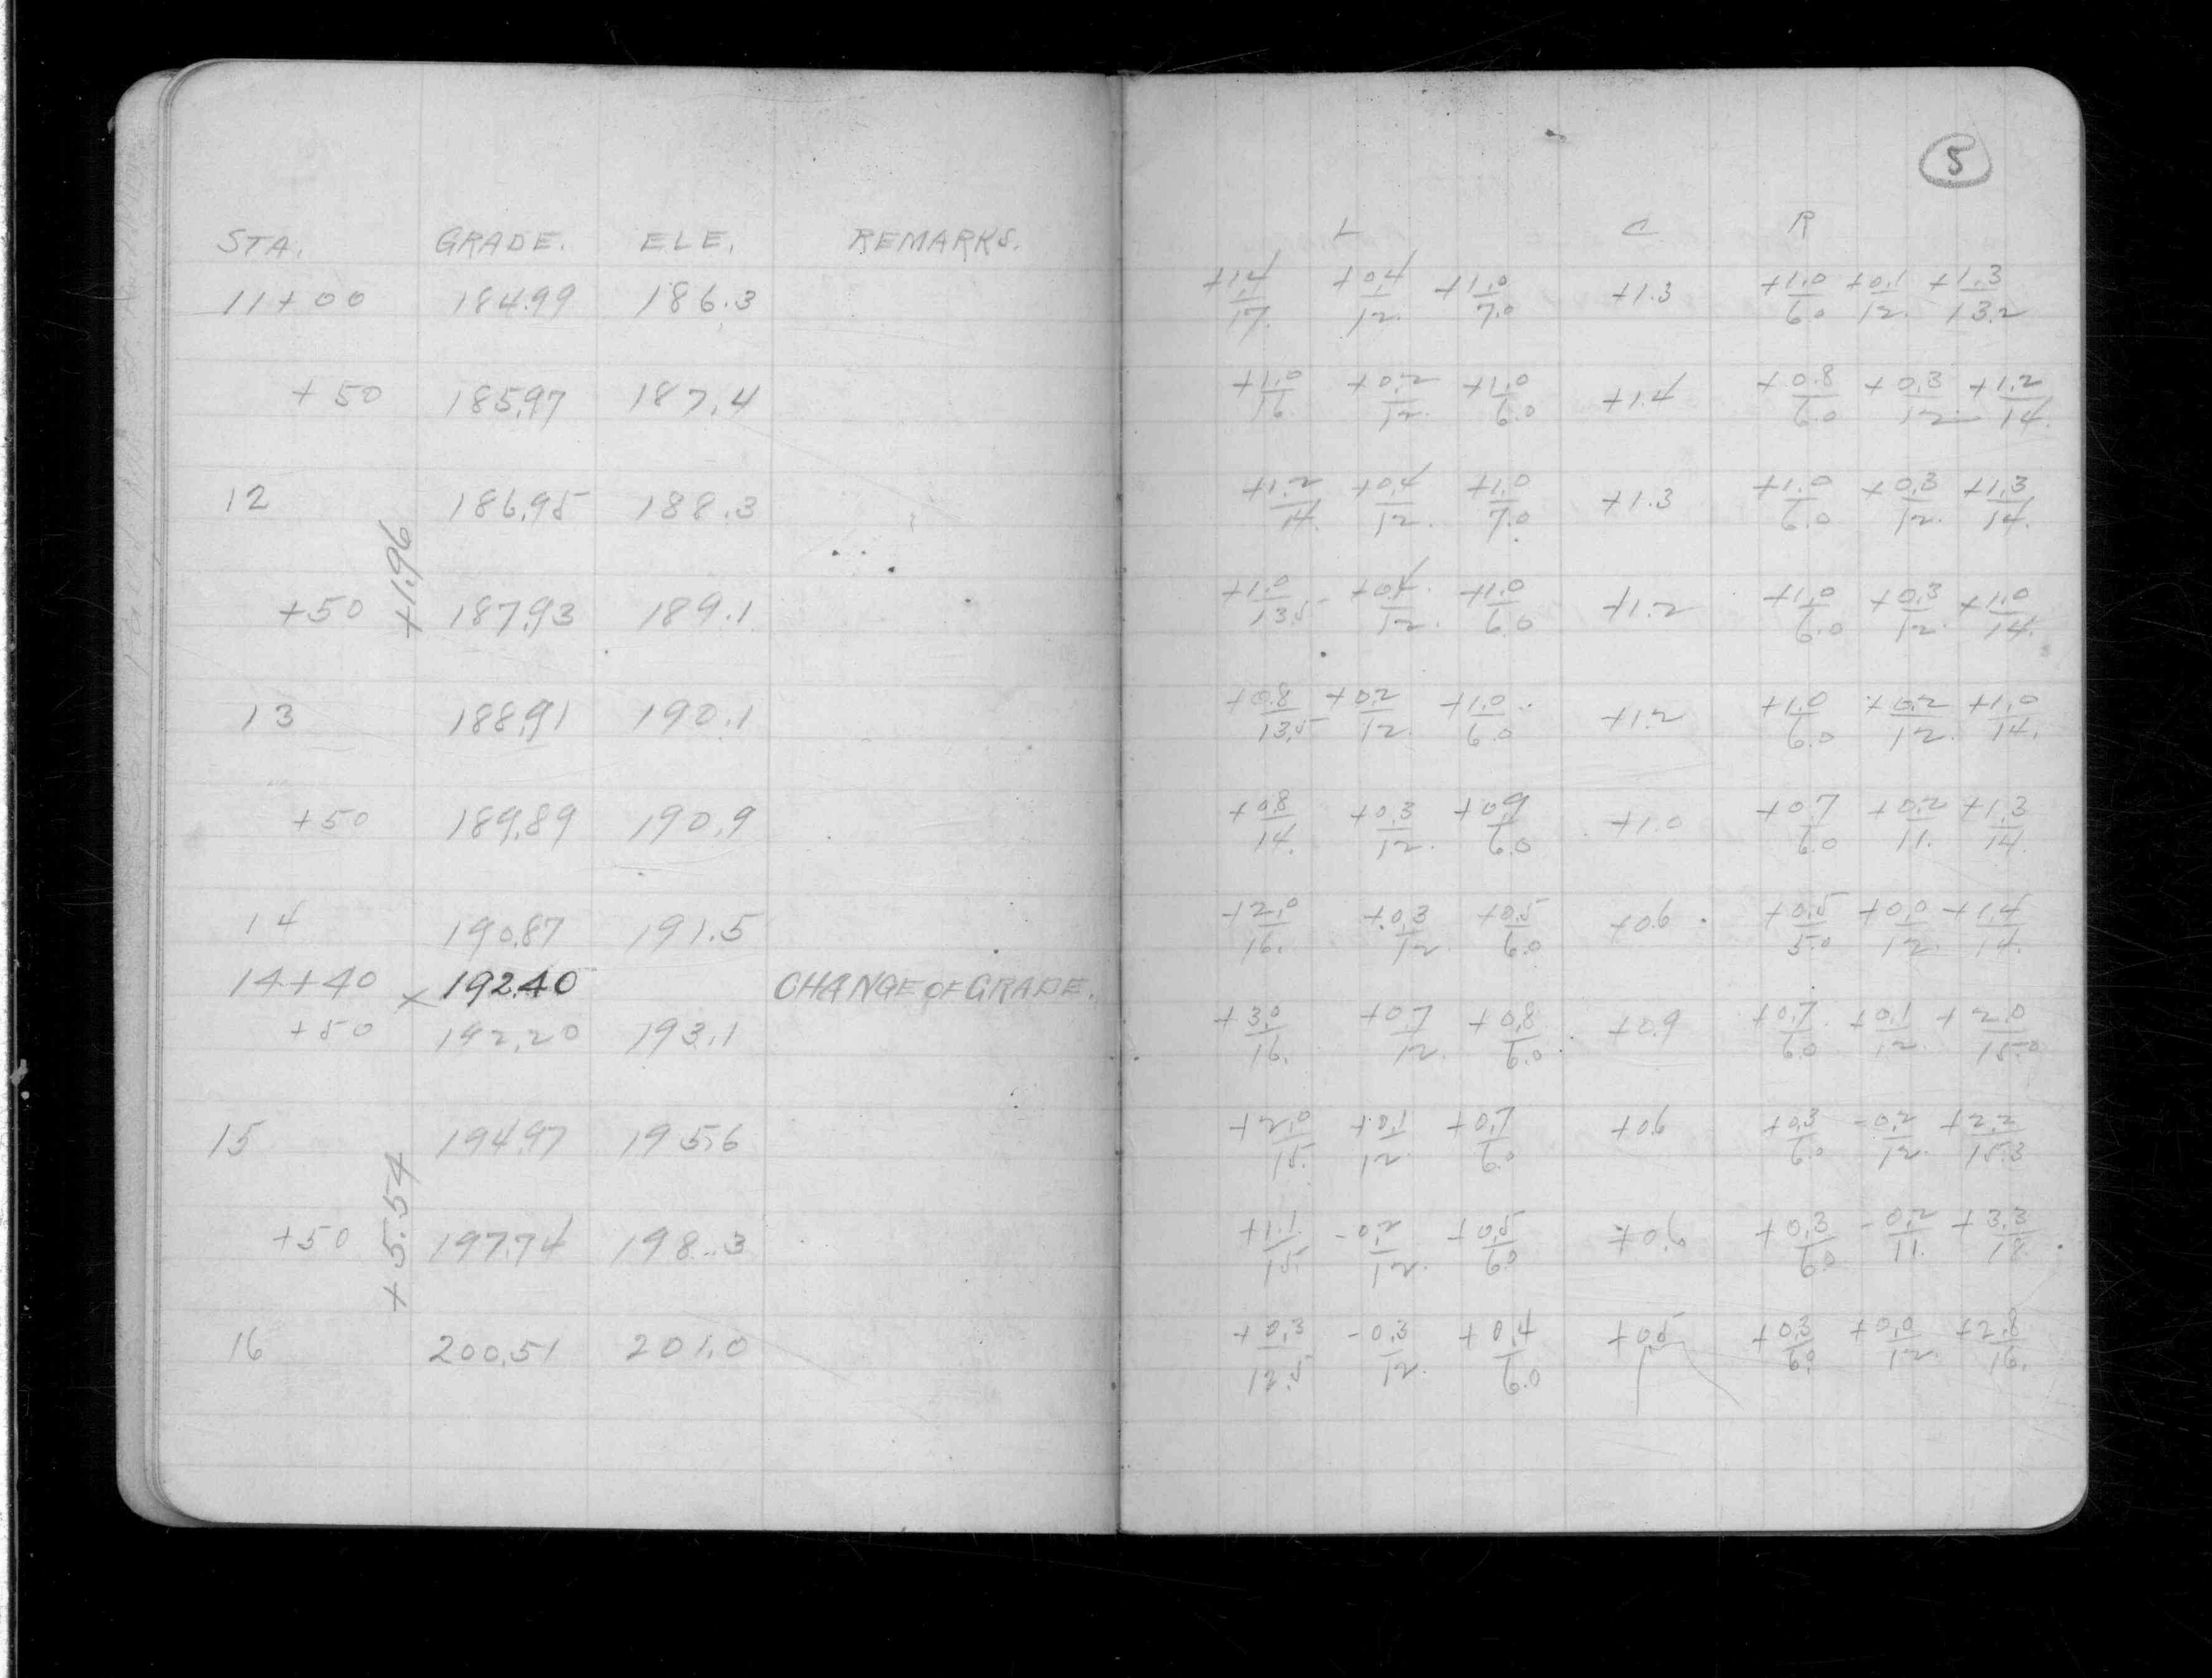 5
STA. GRADE. ELE. REMARKS. L C R
11+00 184.99 186.3 +1.4/17. +0.4/12. +1.0/7.0 +1.3 +1.0/6.0 +0.1/12. +1.3/13.2
+50 185.97 187.4 +1.0/16. +0.2/12. +1.0/6.0 +1.4 +0.8/6.0 +0.3/12. +1.2/14.
12 186.95 188.3 +1.2/14. +0.4/12. +1.0/7.0 +1.3 +1.0/6.0 +0.3/12. +1.3/14.
+1.96
+50 187.93 189.1 +1.0/13.5 +0.4/12. +1.0/6.0 +1.2 +1.0/6.0 +0.3/12. +1.0/14.
13 188.91 190.1 +0.8/13.5 +0.2/12. +1.0/6.0 +1.2 +1.0/6.0 +0.2/12. +1.0/14.
+50 189.89 190.9 +0.8/14. +0.3/12. +0.9/6.0 +1.0 +0.7/6.0 +0.2/11. +1.3/14.
14 190.87 191.5 +2.0/16. +0.3/12. +0.5/6.0 +0.6 +0.5/5.0 +0.0/12. +1.4/14.
14+40 x 192.40 CHANGE OF GRADE.
+50 192.20 193.1 +3.0/16. +0.7/12. +0.8/6.0 +0.9 +0.7/6.0 +0.1/12. +2.0/15.0
15 194.97 195.6 +2.0/15. +0.1/12. +0.7/6.0 +0.6 +0.3/6.0 -0.2/12. +2.2/15.3
+5.54
+50 197.74 198.3 +1.1/15. -0.2/12. +0.5/6.0 +0.6 +0.3/6.0 -0.2/11. +3.3/18.
16 200.51 201.0 +0.3/12.5 -0.3/12. +0.4/6.0 +0.5 +0.3/6.0 +0.0/12. +2.8/16.